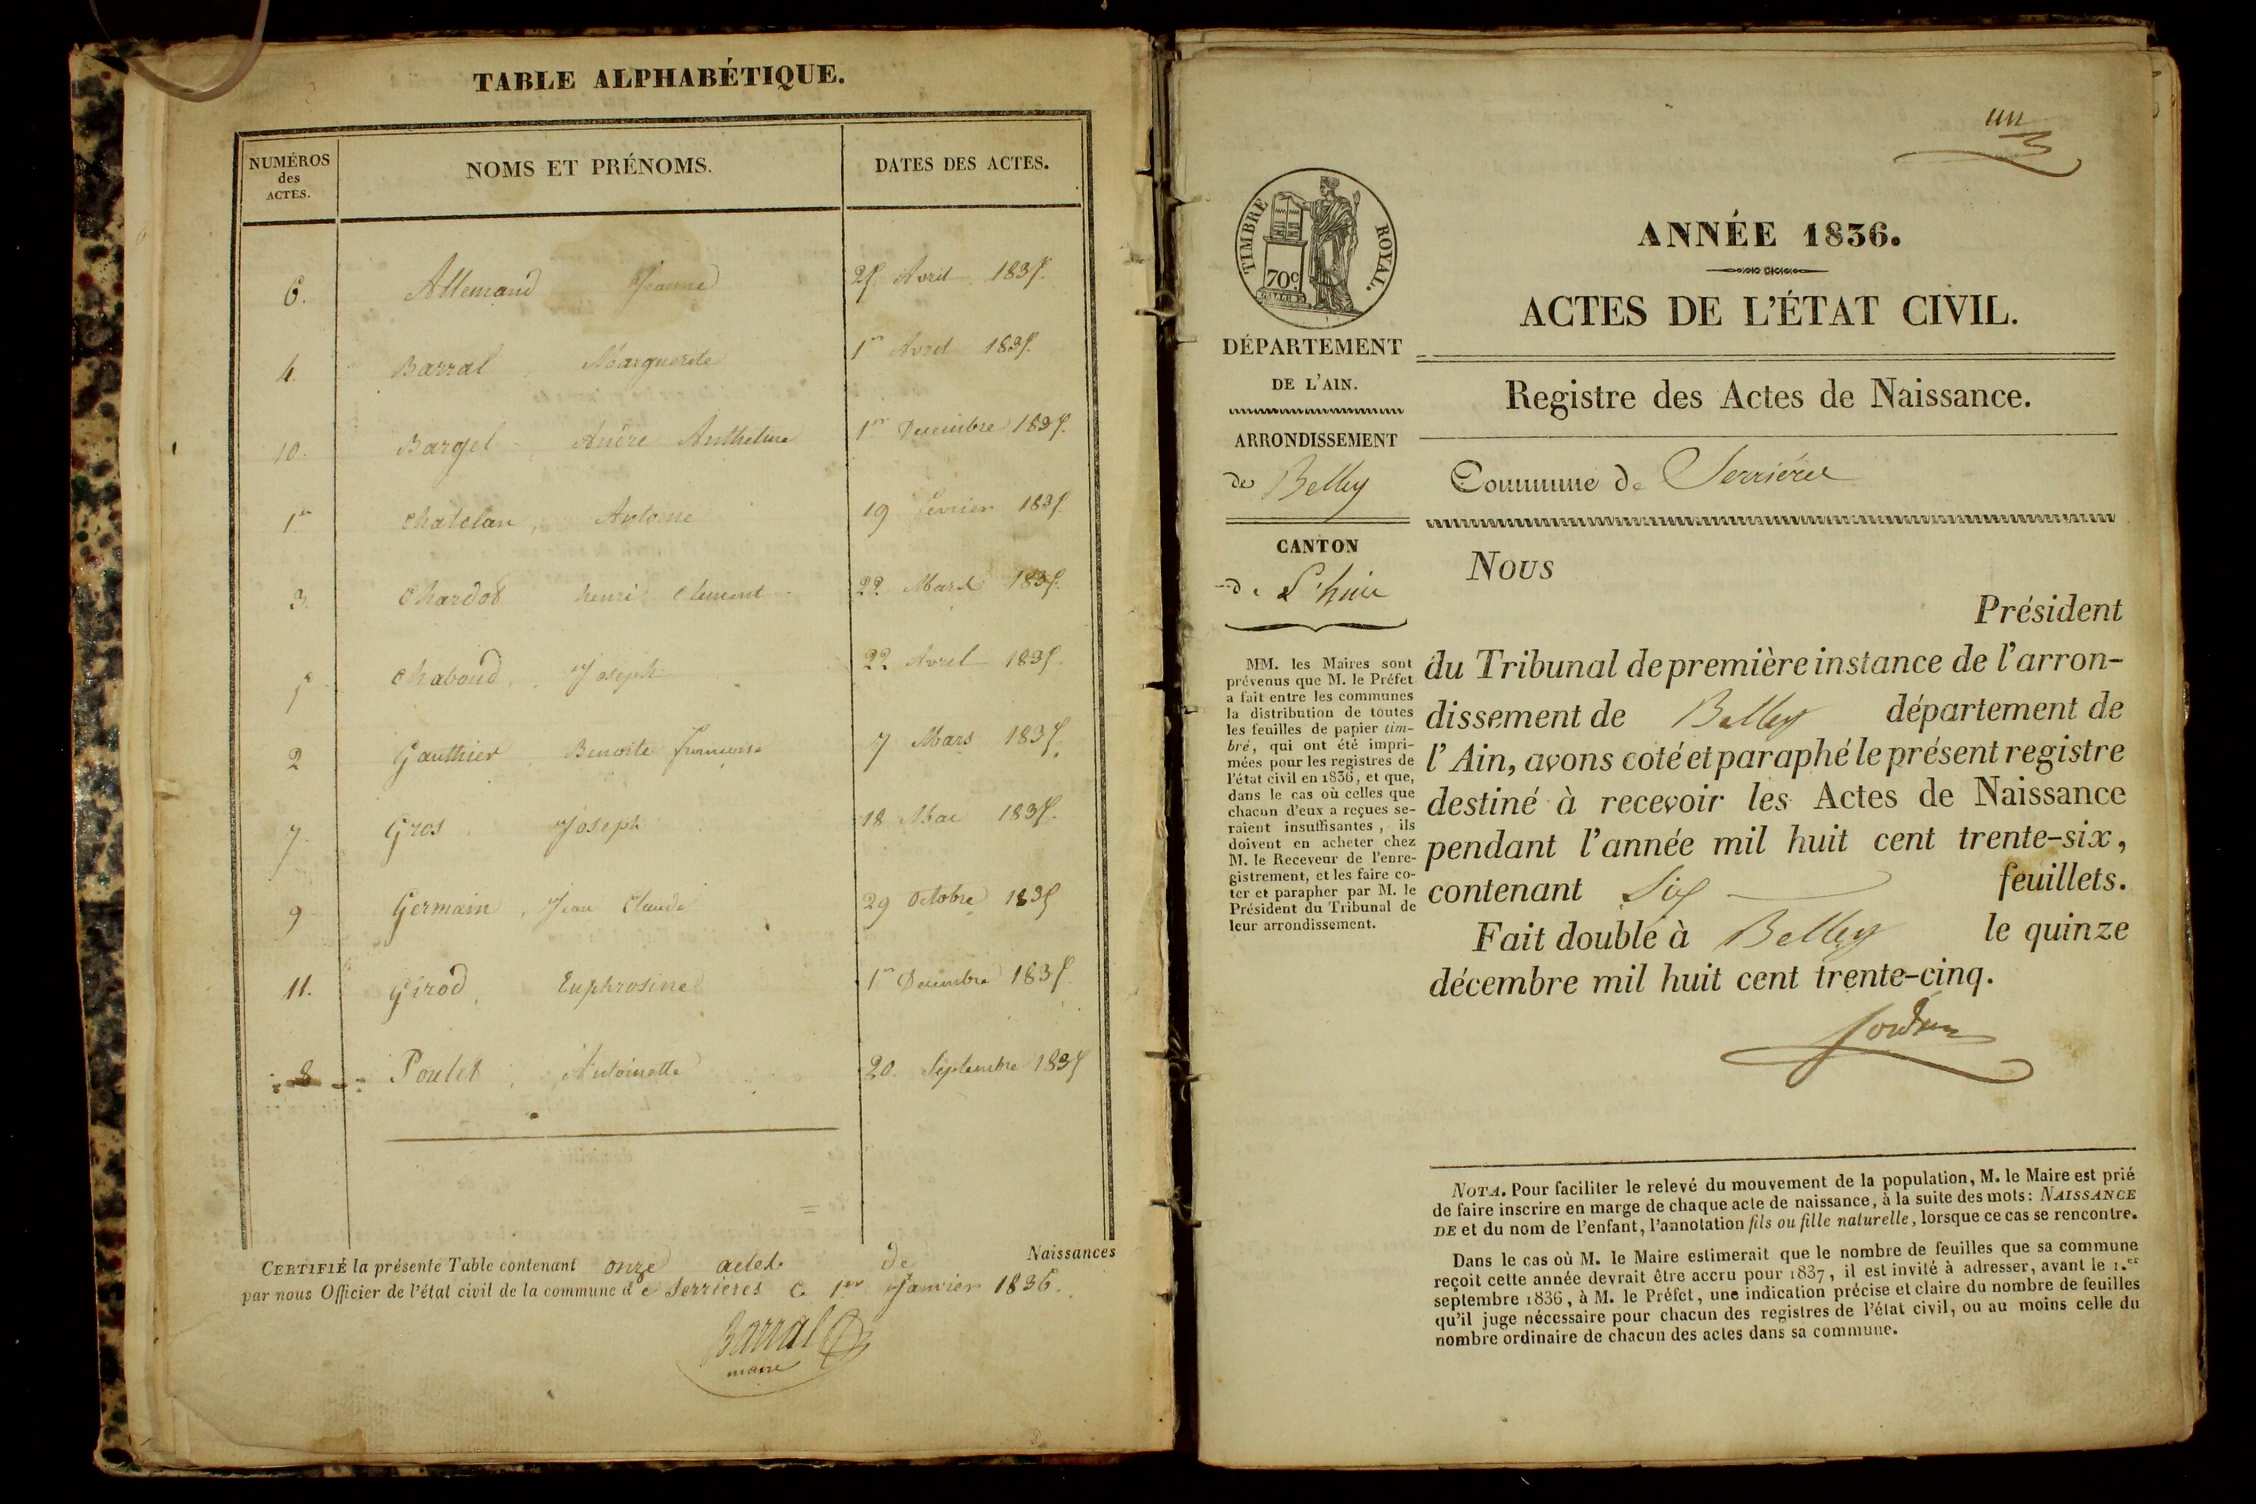 TABLE ALPHABÉTIQUE.
NUMÉROS des ACTES. NOMS ET PRÉNOMS. DATES DES ACTES.
6. Allemand Jeanne 25 Avril 1835.
4. Barral, Marguerite 1er Avril 1835.
10. Bargel Anthelme 1er Decembre 1835.
1er Chatelan, Antoine 19 fevrier 1835.
3. Chardot henri Clement 22 Mars 1835.
5 Chaboud, Joseph 22 Avril 1835.
2 Gauthier, Benoite françoise 7 Mars 1835.
7. Gros Joseph 18 Mai 1835.
9 Germain, Jean Claude 29 Octobre 1835
11. Girod, Euphrosine 1er Decembre 1835.
8 Poulet, Antoinette 20 Septembre 1835
CERTIFIÉ la présente Table contenant onze actes de Naissances
par nous Officier de l'état civil de la commune de Serrieres Ce 1er Janvier 1836.
Barral
maire
un
TIMBRE ROYAL.
70c
ANNÉE 1836.
ACTES DE L'ÉTAT CIVIL.
Registre des Actes de Naissance.
Commune de Serrières
DÉPARTEMENT
DE L'AIN.
ARRONDISSEMENT
de Belley
CANTON
de L'huis
MM. les Maires sont
prévenus que M. le Préfet
a fait entre les communes
la distribution de toutes
les feuilles de papier tim-
bré, qui ont été impri-
mées pour les registres de
l'état civil en 1836, et que,
dans le cas où celles que
chacun d'eux a reçues se-
raient insuffisantes, ils
doivent en acheter chez
M. le Receveur de l'enre-
gistrement, et les faire co-
ter et parapher par M. le
Président du Tribunal de
leur arrondissement.
Nous
Président
du Tribunal de première instance de l'arron-
dissement de Belley département de
l'Ain, avons coté et paraphé le présent registre
destiné à recevoir les Actes de Naissance
pendant l'année mil huit cent trente-six,
contenant Six feuillets.
Fait double à Belley le quinze
décembre mil huit cent trente-cinq.
NOTA. Pour faciliter le relevé du mouvement de la population, M. le Maire est prié
de faire inscrire en marge de chaque acte de naissance, à la suite des mots: NAISSANCE
DE et du nom de l'enfant, l'annotation fils ou fille naturelle, lorsque ce cas se rencontre.
Dans le cas où M. le Maire estimerait que le nombre de feuilles que sa commune
reçoit cette année devrait être accru pour 1837, il est invité à adresser, avant le 1.er
septembre 1836, à M. le Préfet, une indication précise et claire du nombre de feuilles
qu'il juge nécessaire pour chacun des registres de l'état civil, ou au moins celle du
nombre ordinaire de chacun des actes dans sa commune.